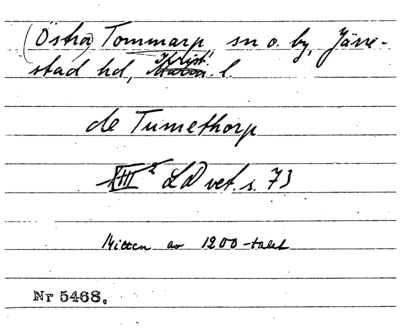 (Östra) Tommarp, sn o. by, Järre-
stad hd, Krist. l.
de Tumethorp
XIII 2 LD vet. s. 73
Mitten av 1200-talet
Nr 5468.